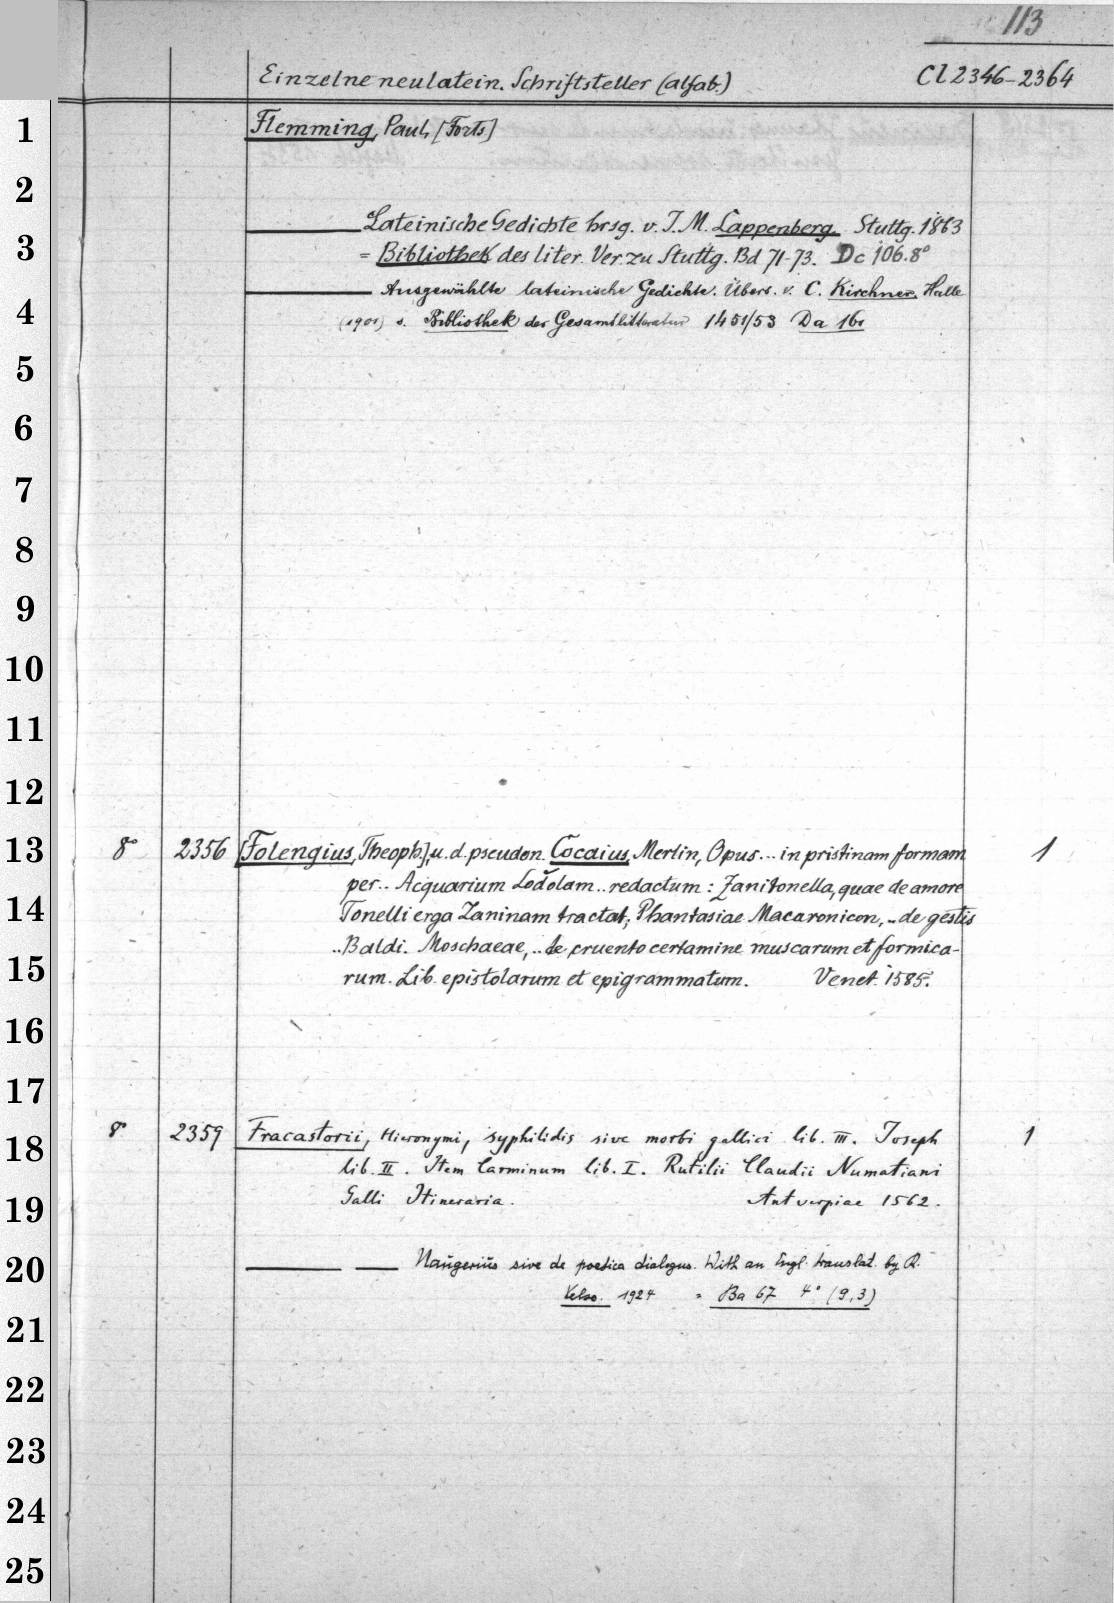 113
Einzelne neulatein. Schriftsteller (alfab.) Cl 2346-2364
1 Flemming, Paul, [Forts]
2
——— Lateinische Gedichte hrsg. v. J. M. Lappenberg. Stuttg. 1863
3 = Bibliothek des liter. Ver. zu Stuttg. Bd 71-73. Dc 106.8°
——— Ausgewählte lateinische Gedichte. Übers. v. C. Kirchner. Halle
4 (1901) s. Bibliothek der Gesamtlitteratur 1451/53 Da 161
5
6
7
8
9
10
11
12
13 8° 2356 [Folengius, Theoph.], u. d. pseudon. Cocaius, Merlin, Opus... in pristinam formam 1
per.. Acquarium Lodolam.. redactum: Zanitonella, quae de amore
14 Tonelli erga Zaninam tractat; Phantasiae Macaronicon, .. de gestis
.. Baldi. Moschaeae, .. de cruento certamine muscarum et formica-
15 rum. Lib. epistolarum et epigrammatum. Venet. 1585.
16
17
18 8° 2359 Fracastorii, Hieronymi, syphilidis sive morbi gallici lib. III. Joseph 1
lib. II. Item Carminum lib. I. Rutilii Claudii Numatiani
19 Galli Itineraria. Antverpiae 1562.
20 ——— —— Naugerius sive de poetica dialogus. With an Engl. translat. by R.
Kelso. 1924 = Ba 67 4° (9,3)
21
22
23
24
25